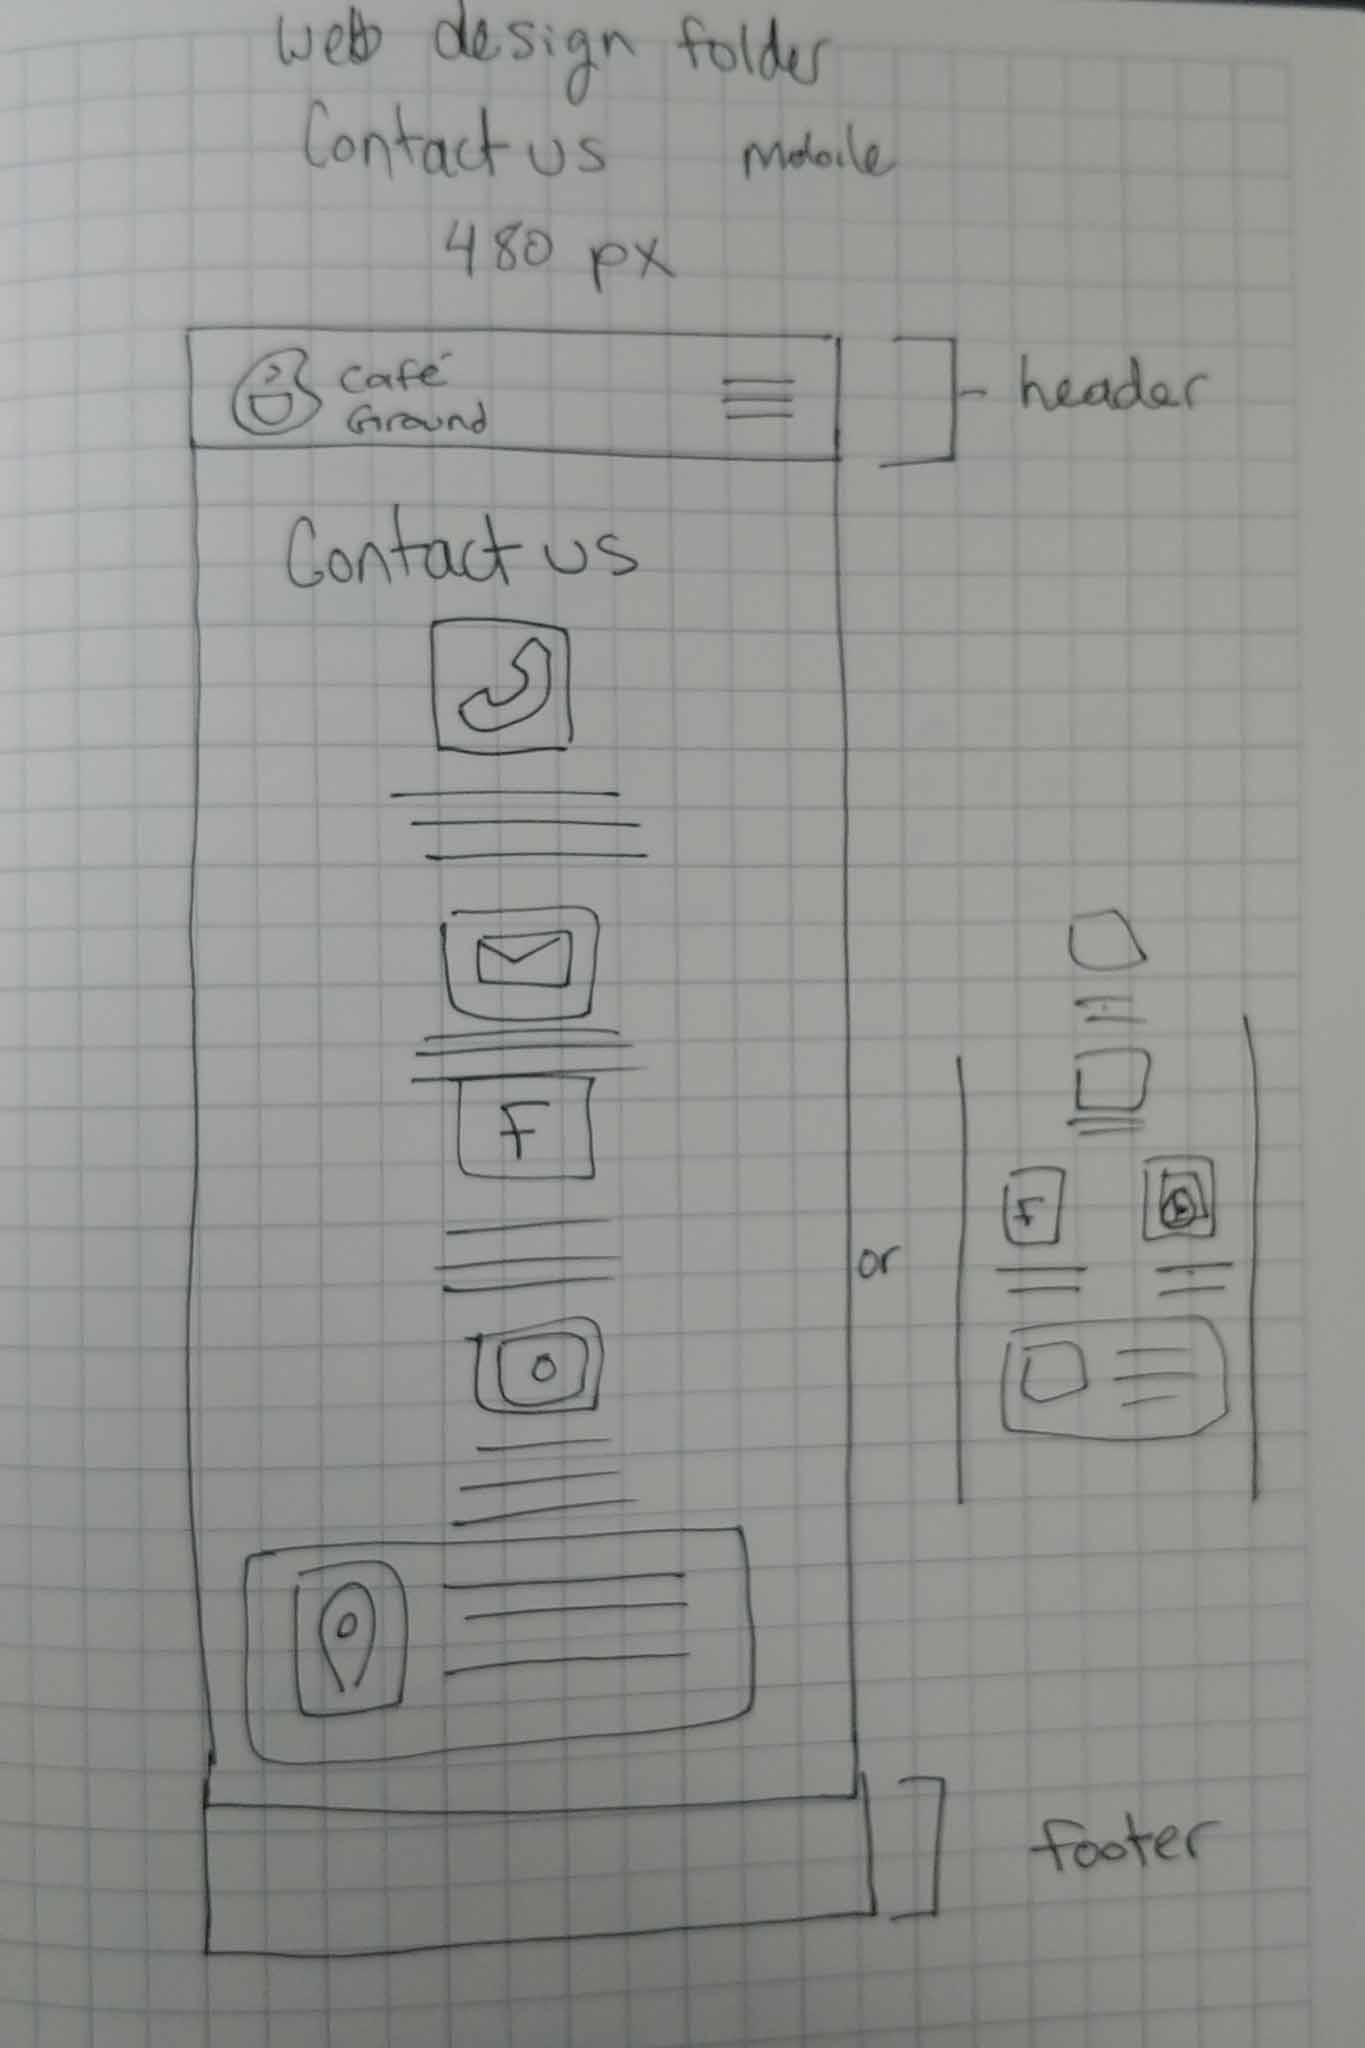 web design folder
Contact us mobile
480 px
Café
Ground
header
Contact us
F
or
F
footer